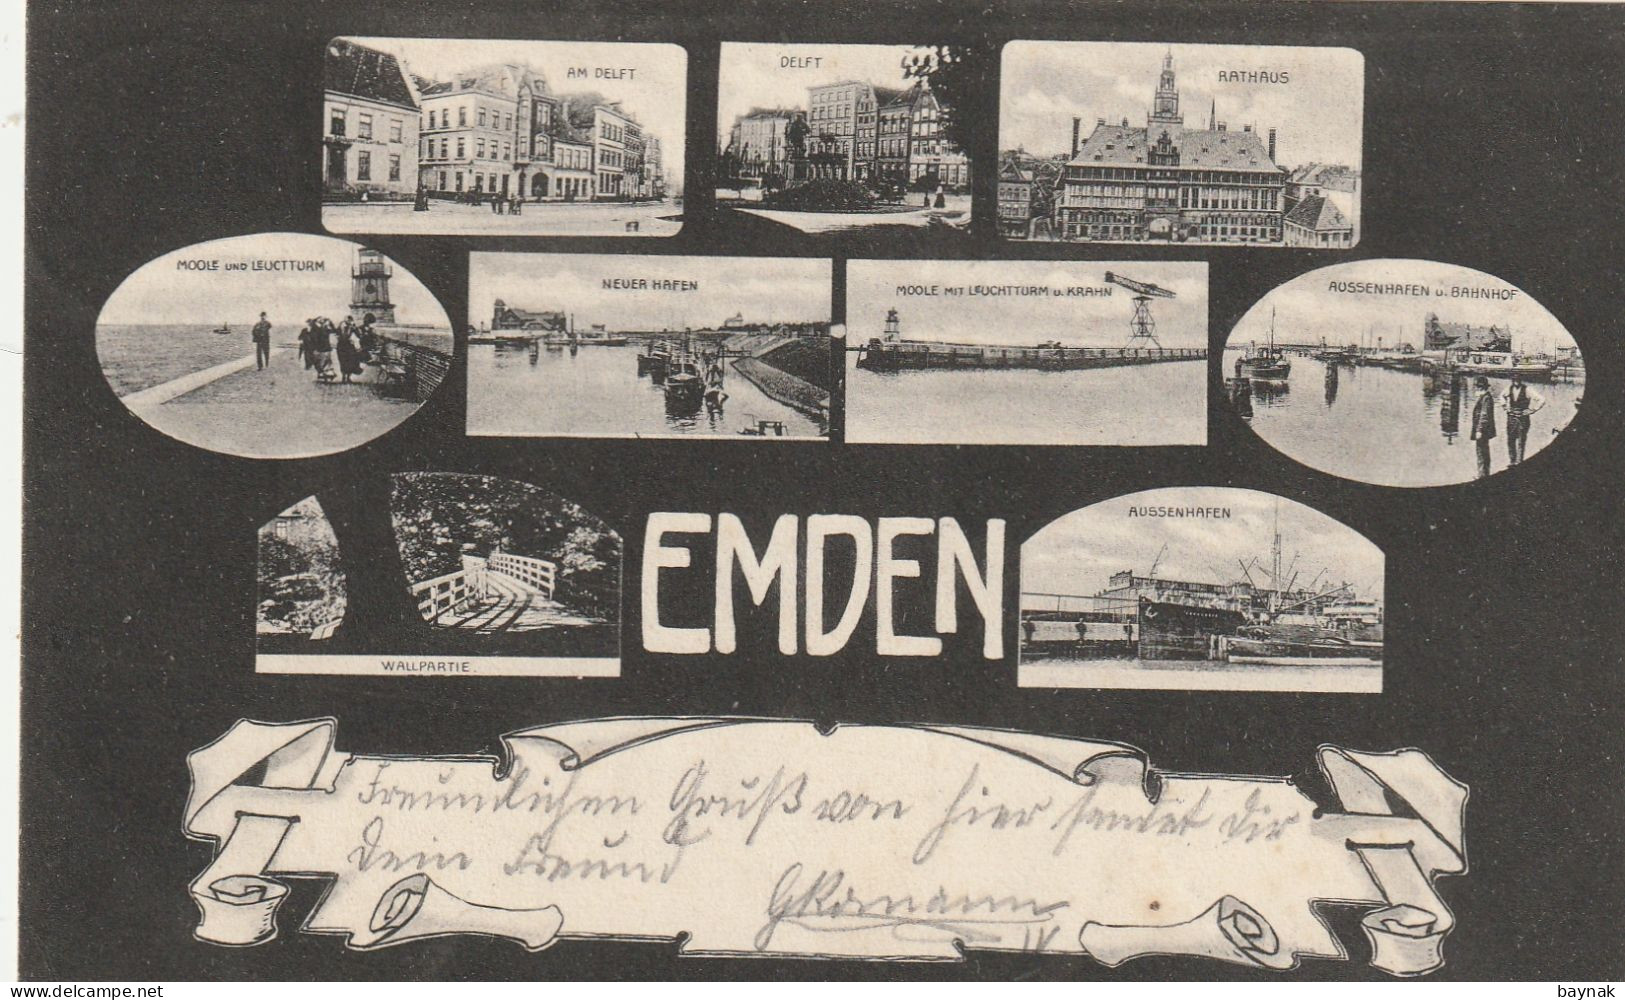 AM DELFT
DELFT
RATHAUS
MOOLE UND LEUCTTURM
NEUER HAFEN
MOOLE MIT LEUCHTTURM U. KRAHN
AUSSENHAFEN U. BAHNHOF
WALLPARTIE.
EMDEN
AUSSENHAFEN
Freundlichen Gruß von hier sendet dir
dein Freund
IV
delcampe.net
baynak